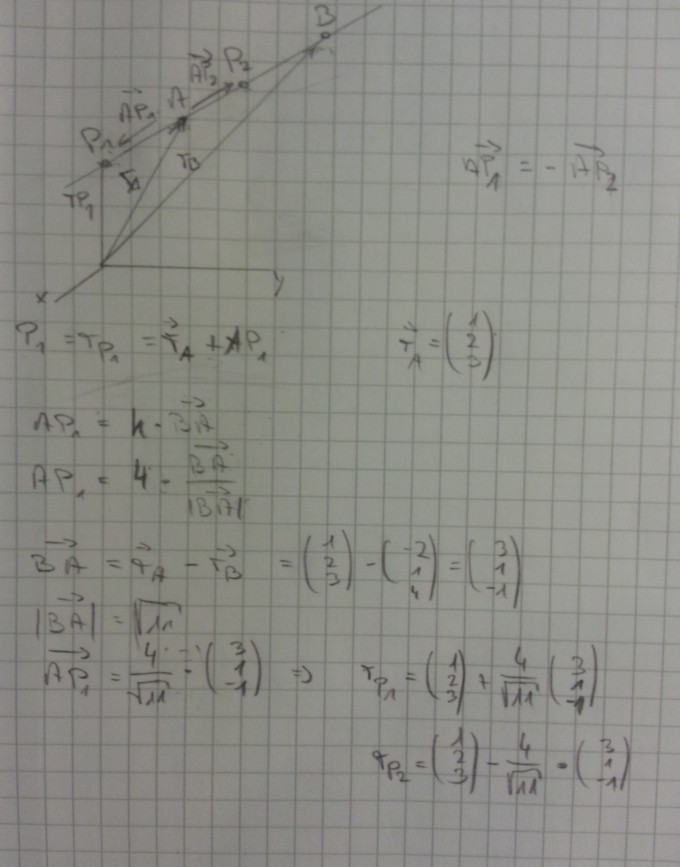 B
P₂
AP₂→
A
AP₁→
P₁
r_B
r_A
r_P₁
AP₁→ = - AP₂→
x
y
P₁ = r_P₁ = r_A→ + AP₁
r_A→ = (1 2 3)
AP₁ = k · BA→
AP₁ = 4 · BA→ / |BA→|
BA→ = r_A→ - r_B→ = (1 2 3) - (-2 1 4) = (3 1 -1)
|BA→| = √11
AP₁→ = 4/√11 · (3 1 -1) => r_P₁ = (1 2 3) + 4/√11 (3 1 -1)
r_P₂ = (1 2 3) - 4/√11 · (3 1 -1)